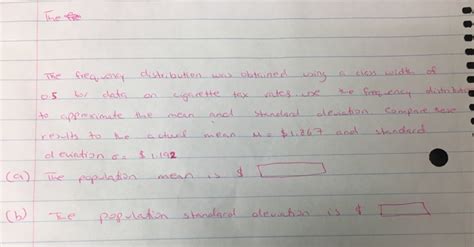 The
The frequency distribution was obtained using a class width of
0.5 for data on cigarette tax rates. use the frequency distribution
to approximate the mean and standard deviation Compare these
results to the actual mean M = $1.267 and standard
deviation σ = $1.192
(a) The population mean is $
(b) The population standard deviation is $